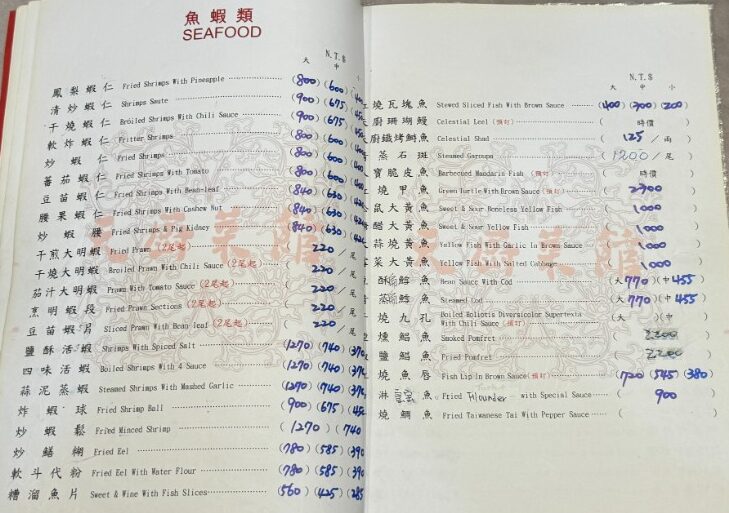 魚蝦類
SEAFOOD
N.T.$
大 中 小
鳳梨蝦仁 Fried Shrimps With Pineapple (800) (600)
清炒蝦仁 Shrimps Saute (900) (675)
干燒蝦仁 Broiled Shrimps With Chili Sauce (900) (675)
軟炸蝦仁 Fritter Shrimps (800) (600)
炒蝦仁 Fried Shrimps (800) (600)
蕃茄蝦仁 Fried Shrimps With Tomato (800) (600)
豆苗蝦仁 Fried Shrimps With Bean-leaf (840) (630)
腰果蝦仁 Fried Shrimps With Cashew Nut (840) (630)
炒蝦腰 Fried Shrimps & Pig Kidney (840) (630)
干煎大明蝦 Fried Prawn (2尾起) ( 220 / 尾
干燒大明蝦 Broiled Prawn With Chili Sauce (2尾起) ( 220 / 尾
茄汁大明蝦 Prawn With Tomato Sauce (2尾起) ( 220 / 尾
烹明蝦段 Fried Prawn Sections (2尾起) ( 220 / 尾
豆苗蝦片 Sliced Prawn With Bean leaf (2尾起) ( 220 / 尾
鹽酥活蝦 Shrimps With Spiced Salt (1270) (740)
四味活蝦 Boiled Shrimps With 4 Sauce (1270) (740)
蒜泥蒸蝦 Steamed Shrimps With Mashed Garlic (1270) (740)
炸蝦球 Fried Shrimp Ball (900) (675)
炒蝦鬆 Fried Minced Shrimp (1270) (740
炒鱔糊 Fried Eel (780) (585) (390
軟斗代粉 Fried Eel With Water Flour (780) (585) (390
糟溜魚片 Sweet & Wine With Fish Slices (560) (425) (285
N.T.$
大 中 小
燒瓦塊魚 Stewed Sliced Fish With Brown Sauce (400) (300) (200)
廚珊瑚鰻 Celestial Leel (預訂) ( 時價 )
廚鐵烤鰣魚 Celestial Shad ( 125 / 兩 )
蒸石斑 Steamed Garoupa ( 1200 / 尾 )
寶脆皮魚 Barbecued Mandaris Fish (預訂) ( 時價 )
燒甲魚 Green Turtle With Brown Sauce (預訂) ( )
鼠大黃魚 Sweet & Sour Boneless Yellow Fish ( 1000 )
醋大黃魚 Sweet & Sour Yellow Fish ( 1000 )
蒜燒黃魚 Yellow Fish With Garlic In Brown Sauce ( 1000 )
菜大黃魚 Yellow Fish With Salted Cabbage ( 1000 )
酥鱈魚 Bean Sauce With Cod (大 770 )(中 455 )
蒸鱈魚 Steamed Cod (大 770 )(中 455 )
燒九孔 Boiled Holiotis Diversicolor Supertexta With Chili Sauce (預訂) (大 )(中 )
燻鯧魚 Smoked Pomfret ( 2200 )
鹽鯧魚 Fried Pomfret ( 2200 )
燒魚唇 Fish Lip In Brown Sauce (預訂) (720) (545) (380)
淋 魚 Fried Flounder with Special Sauce ( 900 )
燒鯛魚 Fried Taiwanese Tai With Pepper Sauce ( )